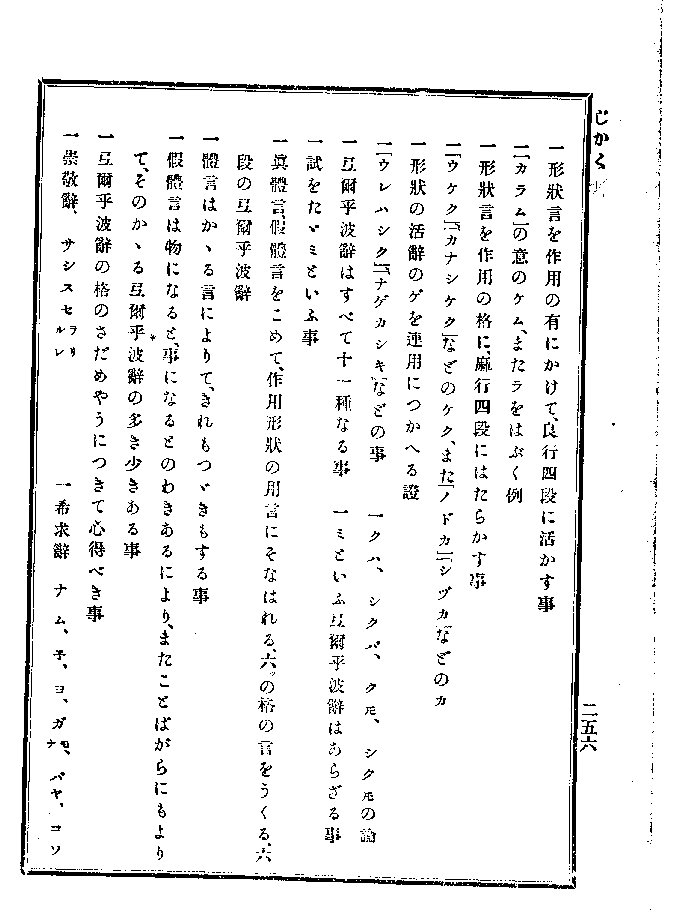 じかく
一形狀言を作用の有にかけて、良行四段に活かす事
一「カラム」の意のケム、またラをはぶく例
一形狀言を作用の格に、麻行四段にはたらかす事
一「ウケク」「カナシケク」などのケク、また「ノドカ」「シヅカ」などのカ
一形狀の活辭のゲを連用につかへる證
一「ウレハシク」「ナゲカシキ」などの事　一クハ、シクバ、クモ、シクモの論
一互爾乎波辭はすべて十一種なる事　一ミといふ互爾乎波辭はあらざる事
一試をたゞミといふ事
一眞體言、假體言をこめて、作用形狀の用言にそなはれる、六ッの格の言をうくる、六
段の互爾乎波辭
一體言はかゝる言によりて、きれもつゞきもする事
一假體言は物になると、事になるとのわきあるにより、またことばがらにもより
て、そのかゝる互爾乎波辭の多き少きある事
一互爾乎波辭の格のさだめやうにつきて心得べき事
一崇敬辭、サシスセラリルレ　一希求辭　ナム、子、ヨ、ガモナ、バヤ、コソ
二五六